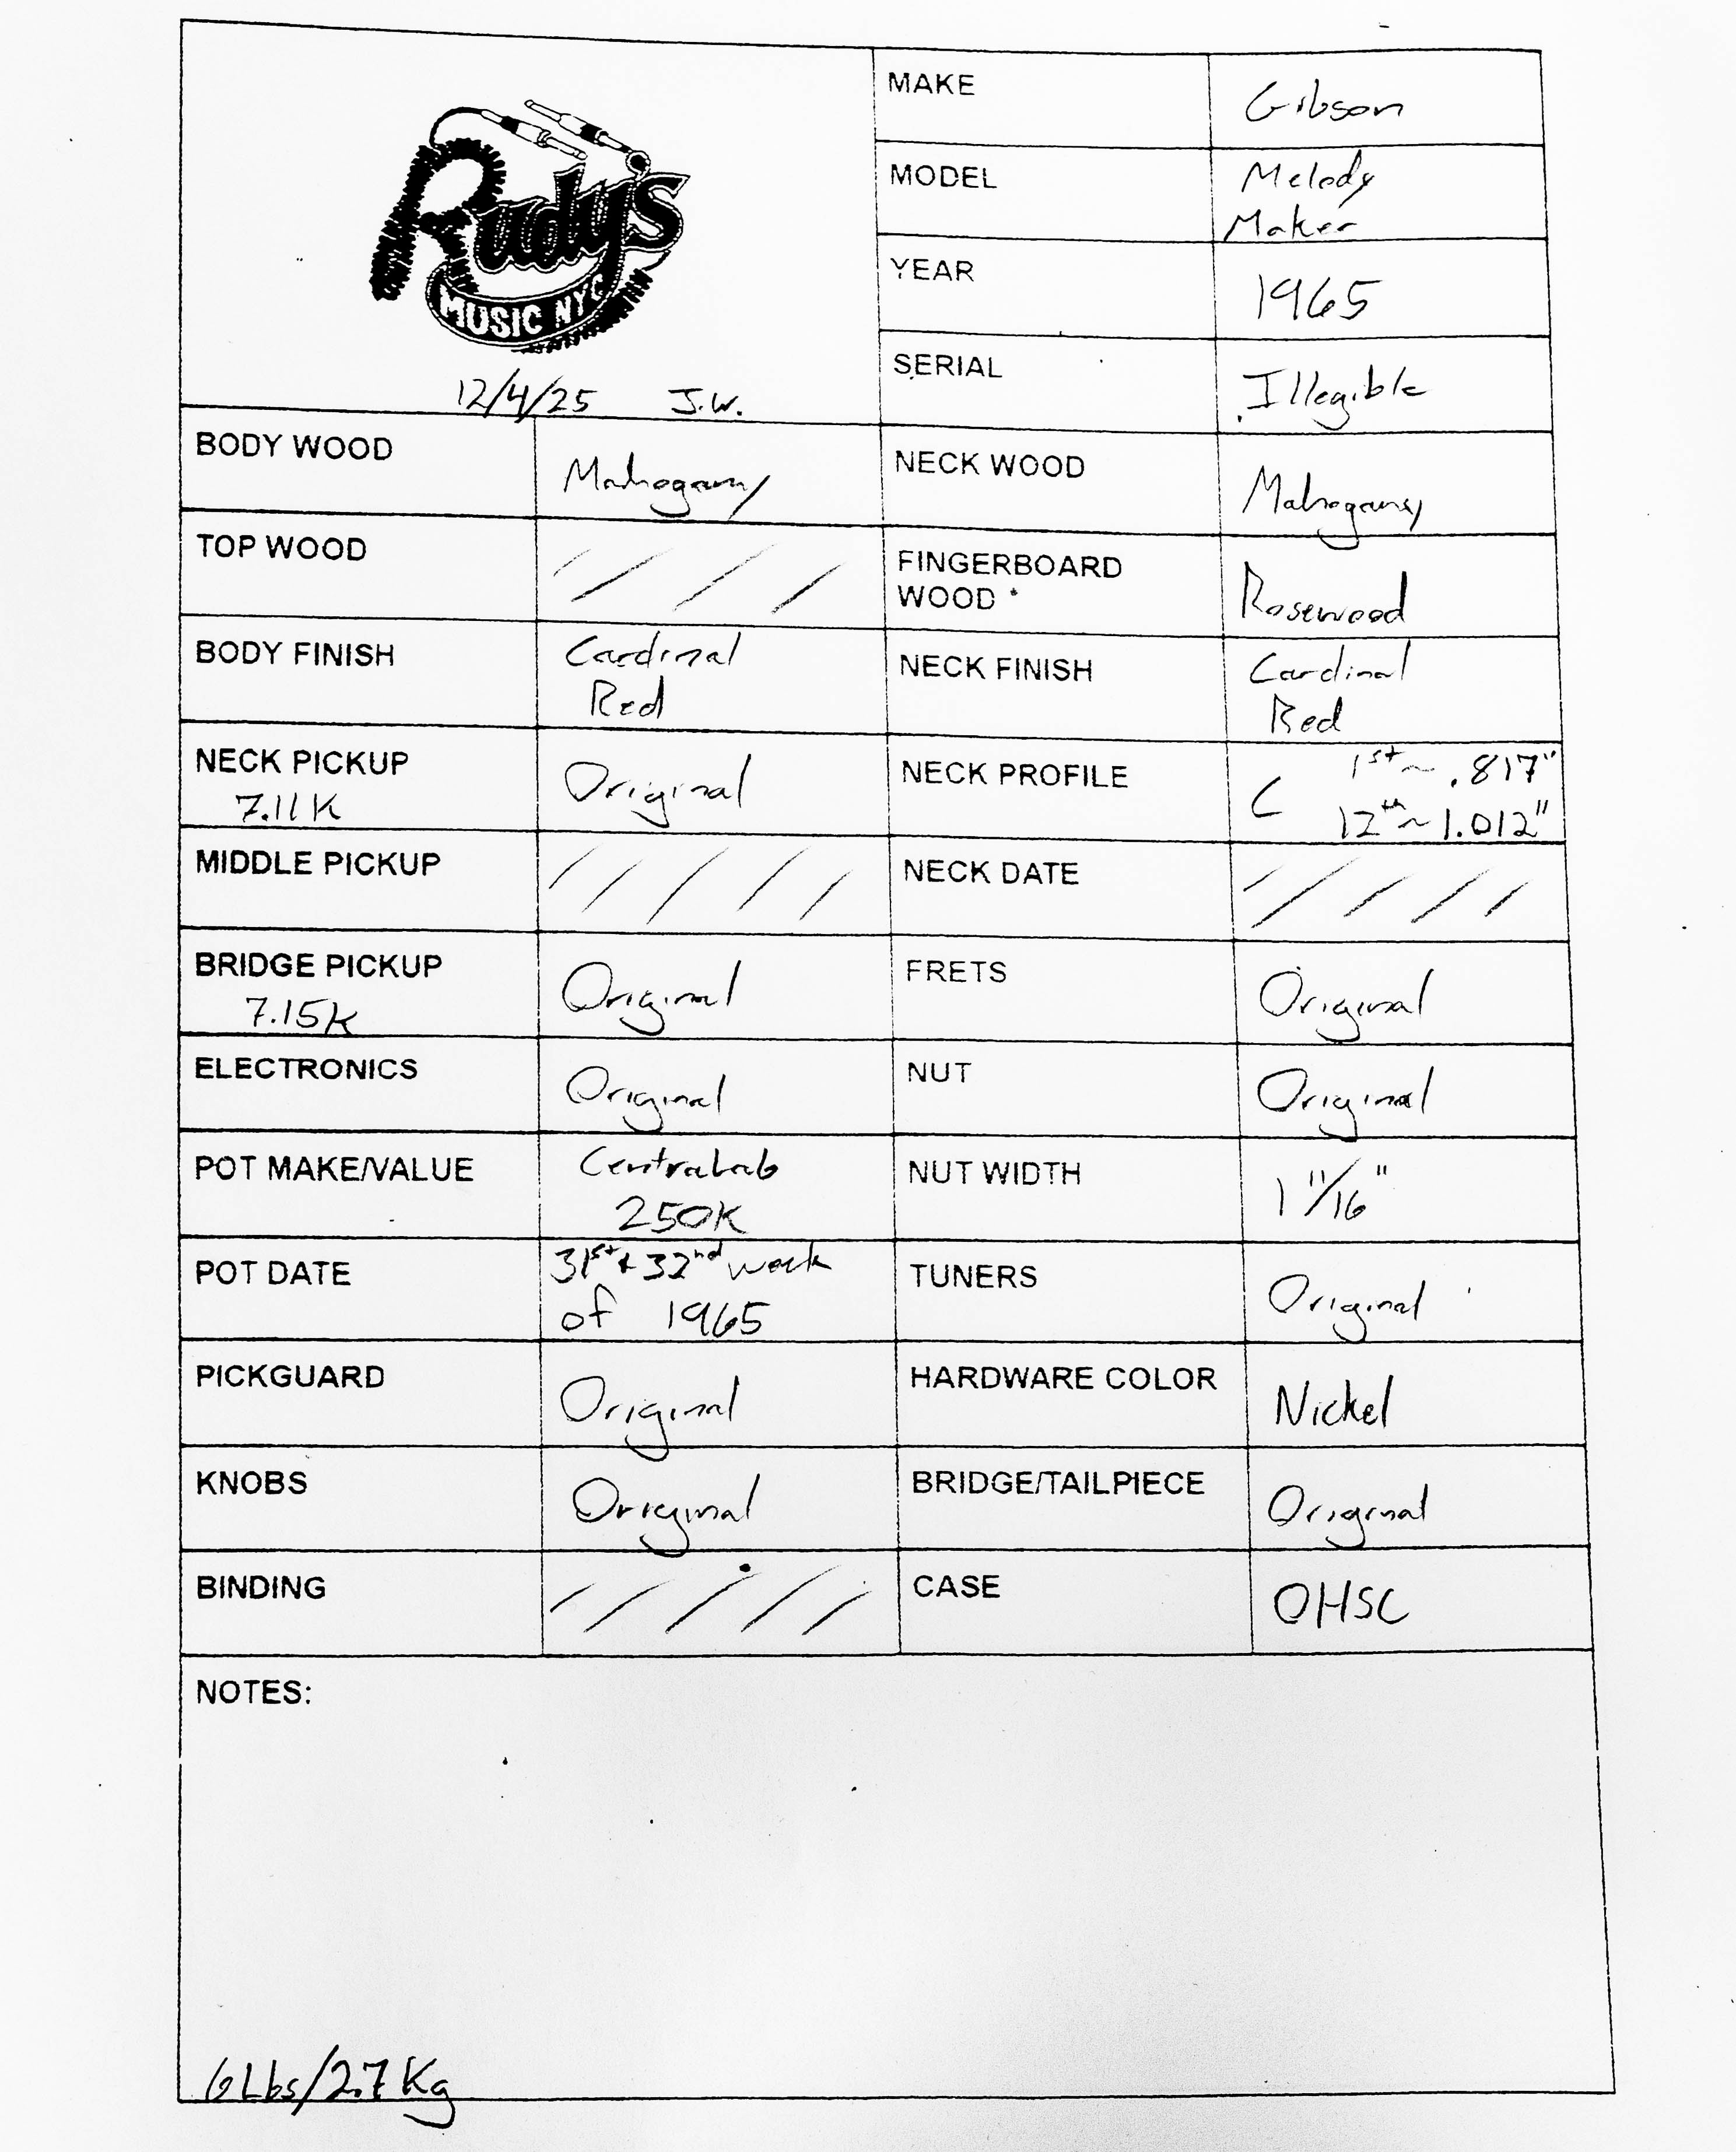 Rudy's
MUSIC NYC
12/4/25 J.W.
MAKE Gibson
MODEL Melody
Maker
YEAR 1965
SERIAL Illegible
BODY WOOD Mahogany
NECK WOOD Mahogany
TOP WOOD
FINGERBOARD
WOOD Rosewood
BODY FINISH Cardinal
Red
NECK FINISH Cardinal
Red
NECK PICKUP Original
7.11K
NECK PROFILE C 1st ~ .817"
12th ~ 1.012"
MIDDLE PICKUP
NECK DATE
BRIDGE PICKUP Original
7.15K
FRETS Original
ELECTRONICS Original
NUT Original
POT MAKE/VALUE Centralab
250K
NUT WIDTH 1 11/16"
POT DATE 31st + 32nd week
of 1965
TUNERS Original
PICKGUARD Original
HARDWARE COLOR Nickel
KNOBS Original
BRIDGE/TAILPIECE Original
BINDING
CASE OHSC
NOTES:
6Lbs/2.7Kg